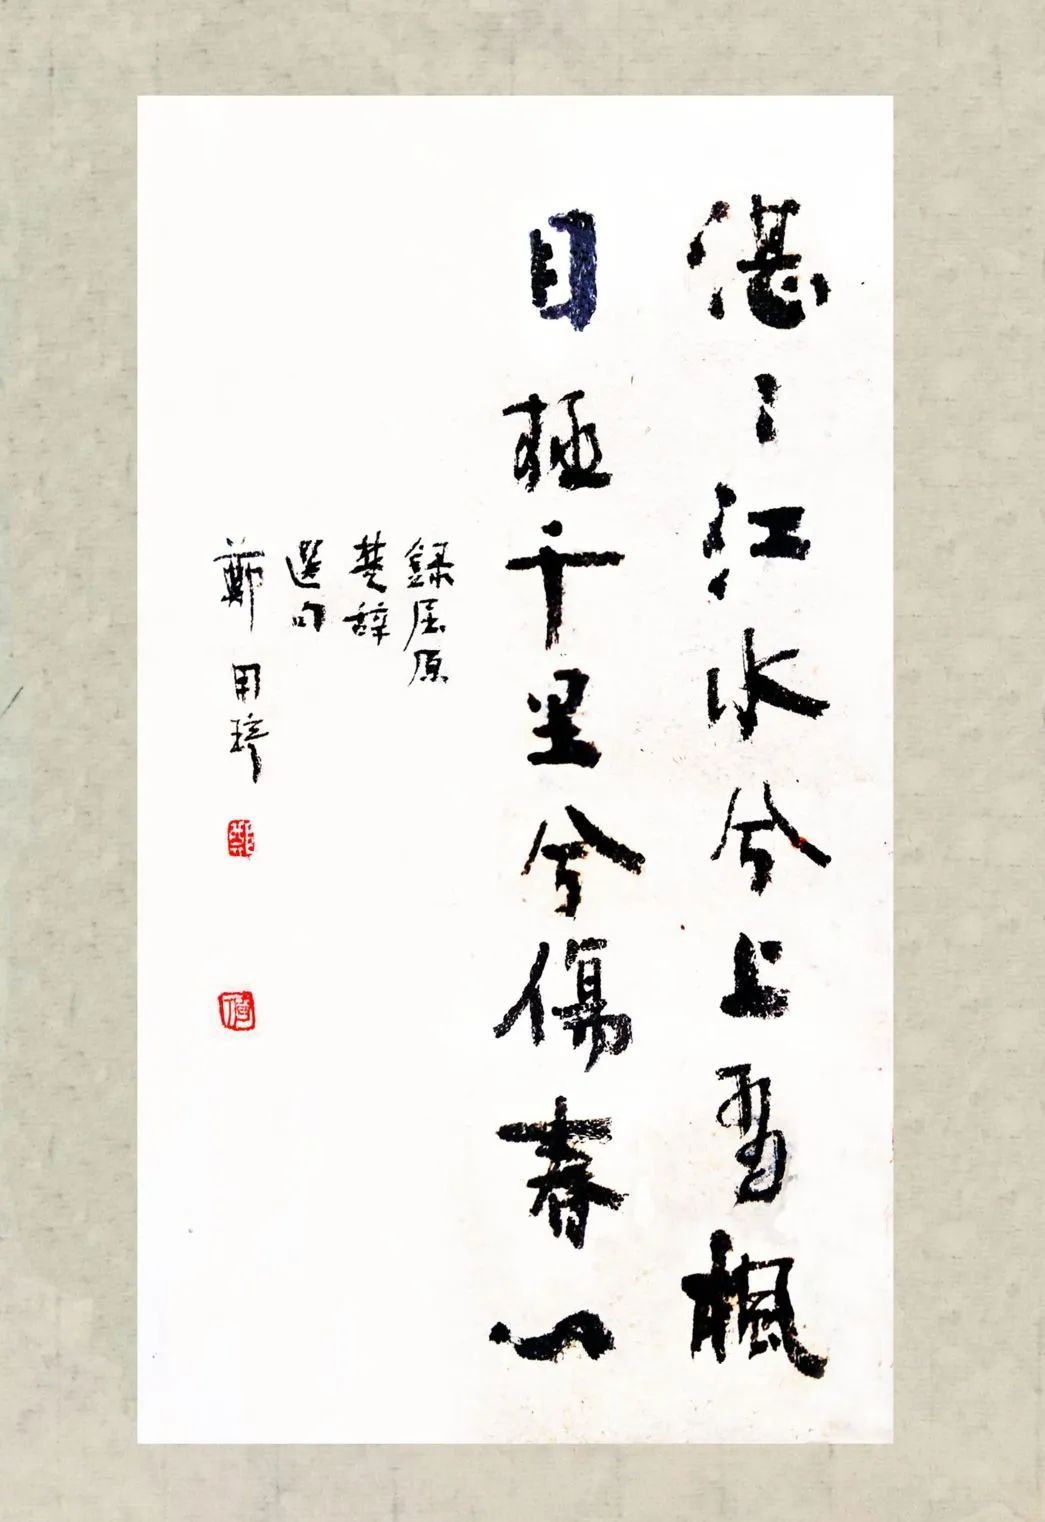 湛〻江水兮上有楓
目極千里兮傷春心
錄屈原
楚辞
選句
鄭用琦
鄭